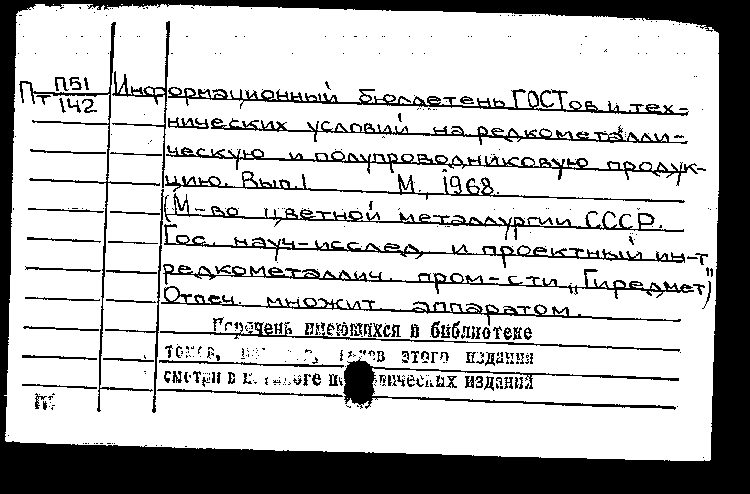 Пт П51/142
Информационный бюллетень ГОСТов и тех-
нических условий на редкометалли-
ческую и полупроводниковую продук-
цию. Вып.1 М., 1968.
(М-во цветной металлургии СССР.
Гос. науч-исслед. и проектный ин-т
редкометаллич. пром-сти „Гиредмет")
Отпеч. множит. аппаратом.
Перечень имеющихся в библиотеке
этого издания
смотри в издания